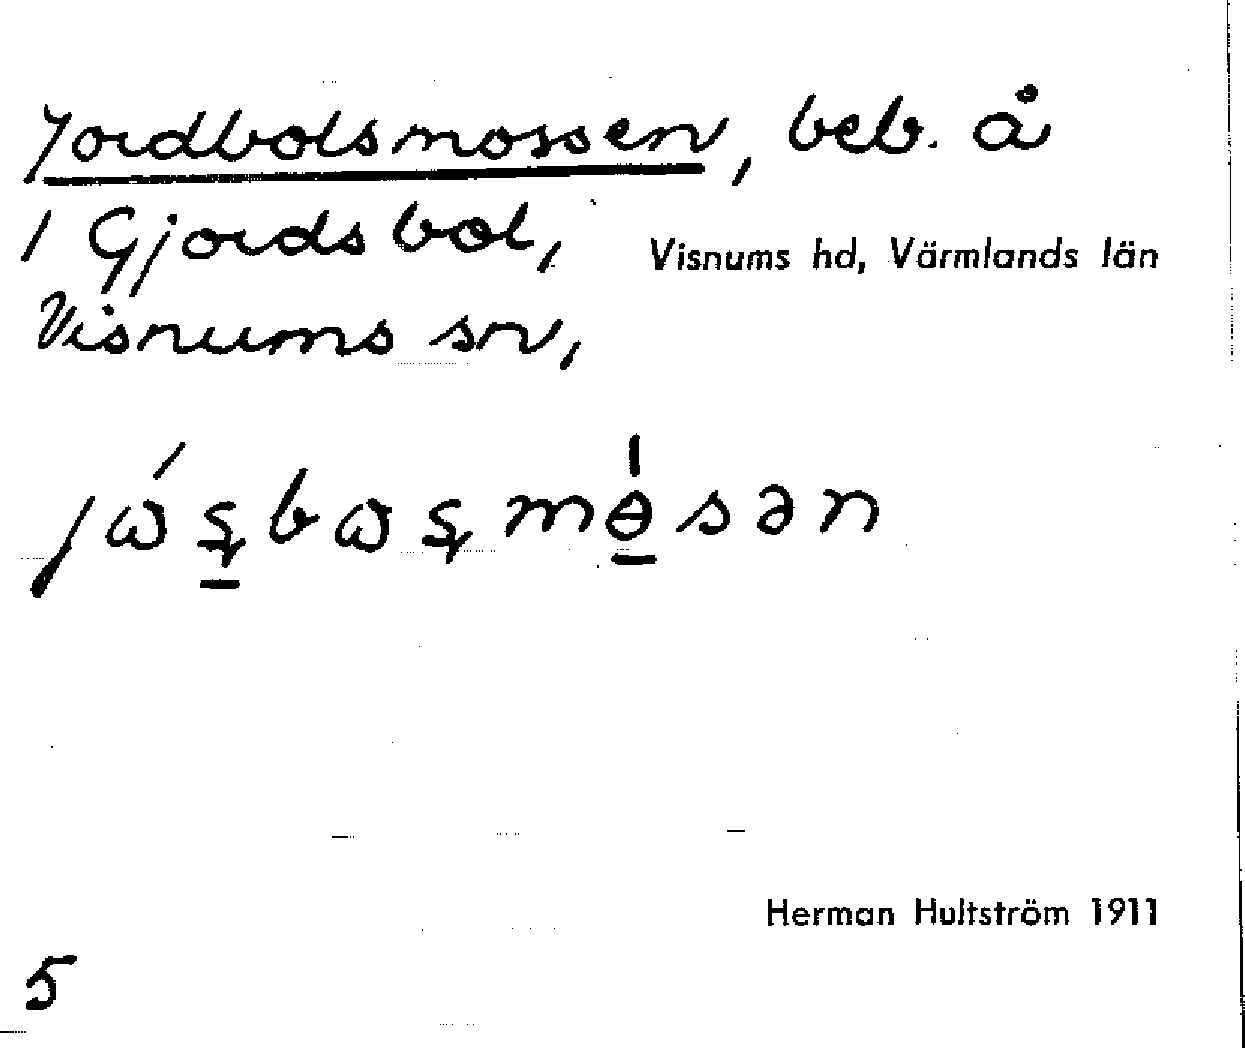 Jordbolsmossen, beb. å
1 Gjordsbol, Visnums hd, Värmlands län
Visnums sn,
Herman Hultström 1911
5